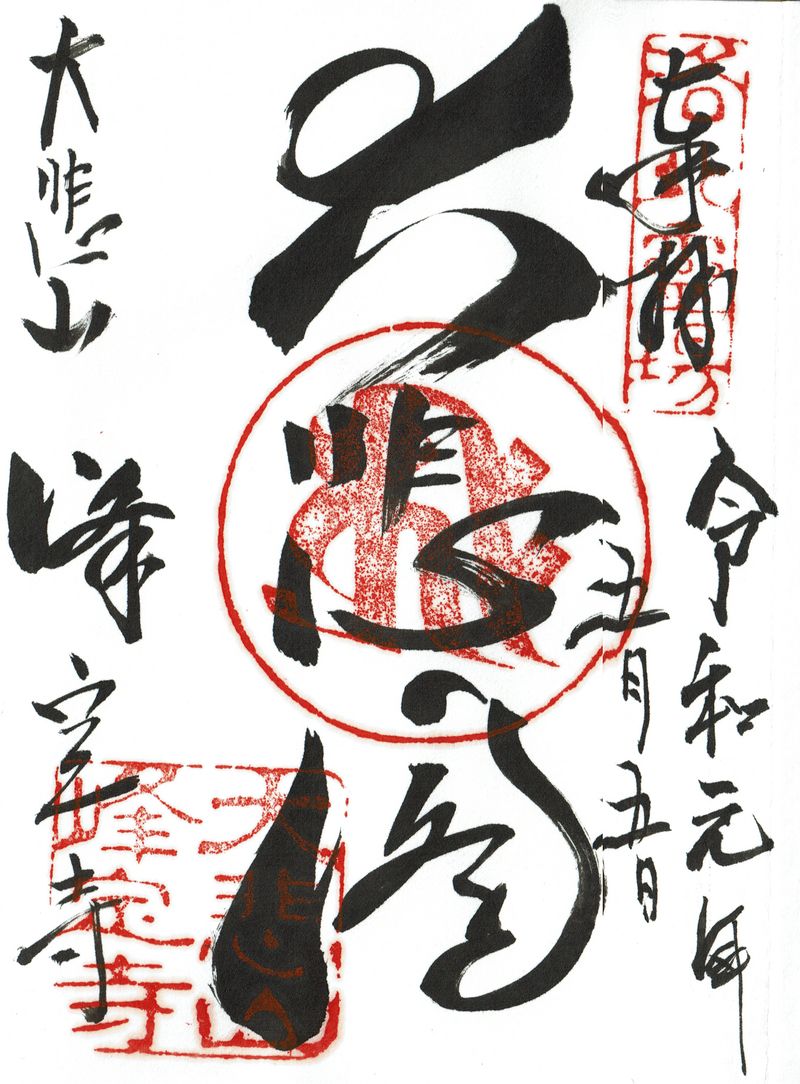 奉拝
令和元年
五月五日
大悲閣
大悲山
峰定寺
大悲山
峰定寺